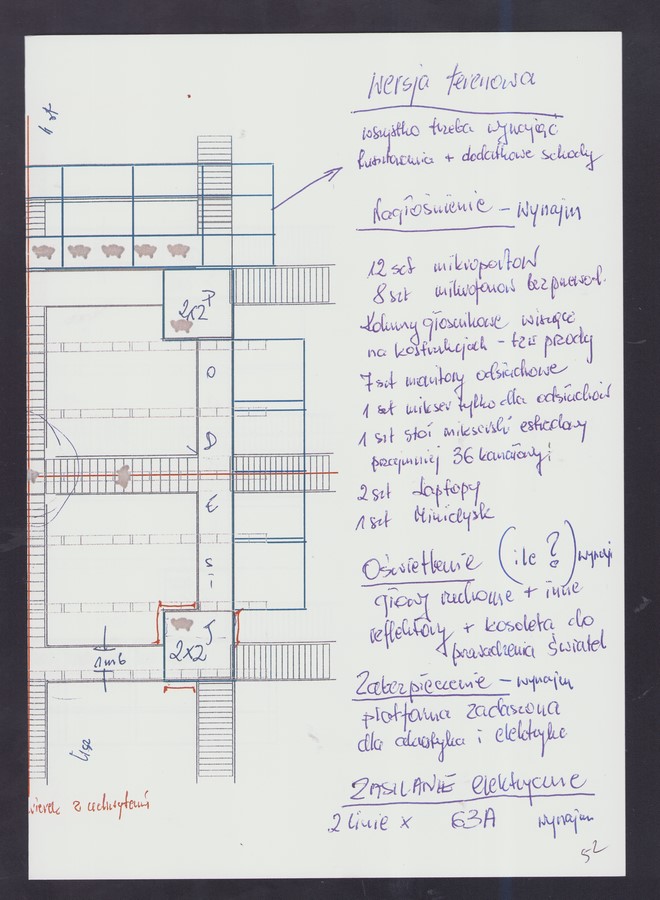 wersja terenowa
wszystko trzeba wynająć
+ dodatkowe schody
Nagłośnienie – wynajm
12 szt mikroportów
8 szt mikrofonów bezprzewod.
Kolumny głośnikowe wiszące
na kostrukcjach – tzw przody
7 szt monitory odsłuchowe
1 szt mikser tylko dla odsłuchów
1 szt stół mikserski estradowy
przynajmniej 36 kanałowy!
2 szt Laptopy
1 szt Minidysk
Oświetlenie (ile ?) wynajm
głowy ruchome + inne
reflektory + konsoleta do
prowadzenia świateł
Zabezpieczenie – wynajm
platforma zadaszona
dla akustyka i elektryka
ZASILANIE elektryczne
2 linie x 63A wynajm
52
2x2
P
O
D
E
S
T
2x2
1m6
z uchwytami